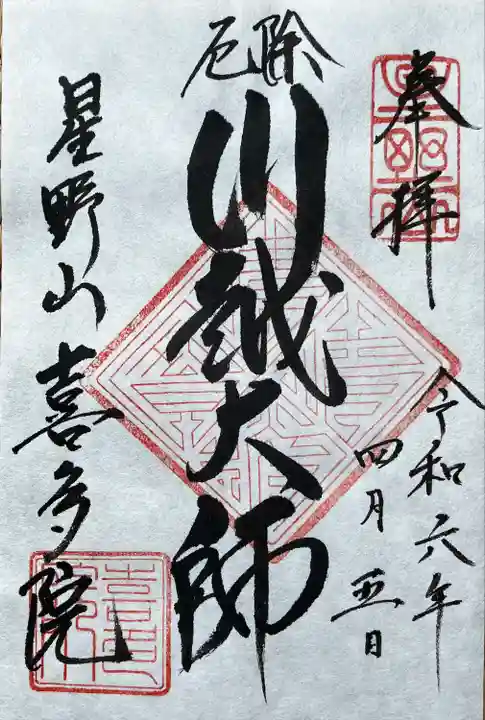 奉拝
令和六年
四月五日
厄除
川越大師
星野山喜多院